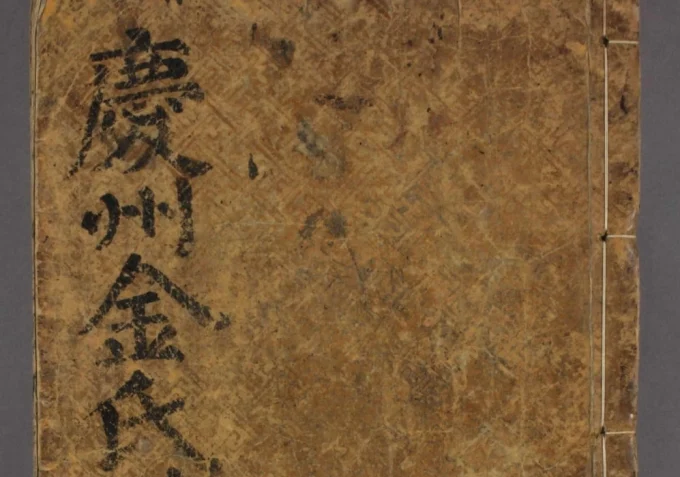 慶州金氏